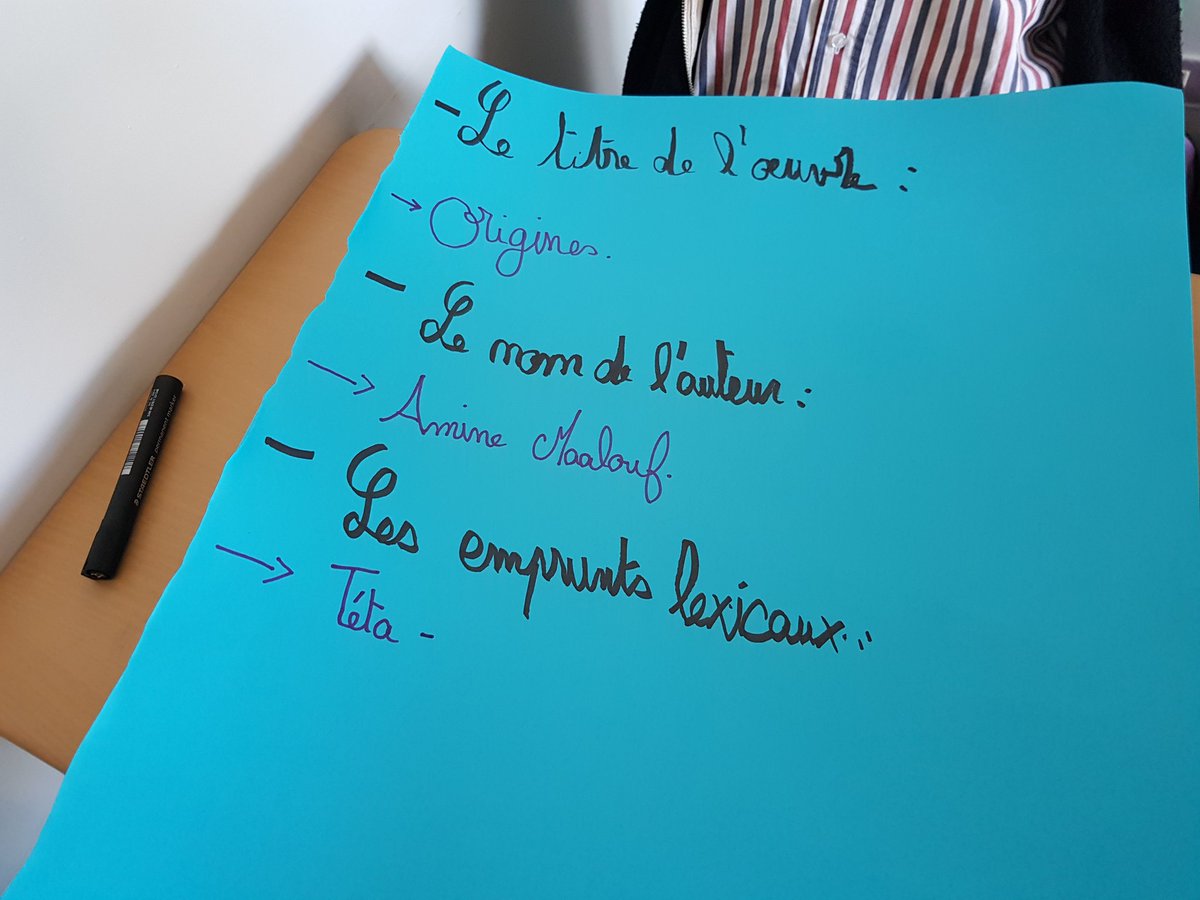 - Le titre de l'œuvre :
→ Origines.
- Le nom de l'auteur :
→ Amine Maalouf.
- Les emprunts lexicaux :
→ Téta -
STAEDTLER permanent marker